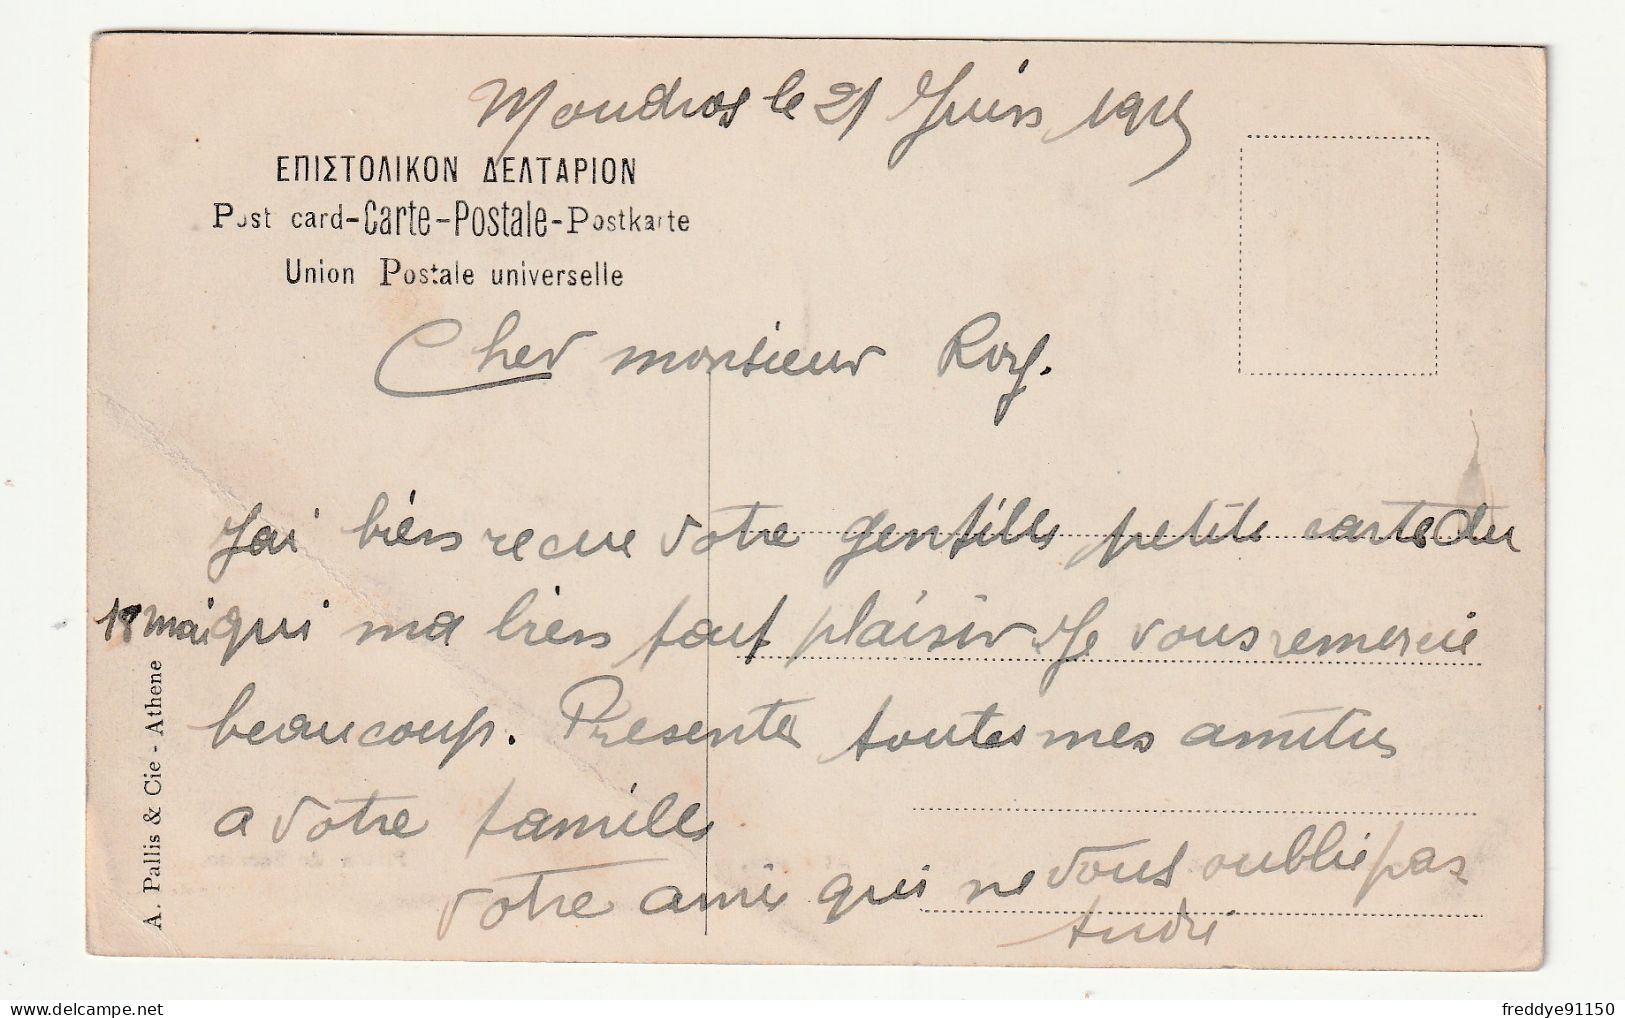 Moudros le 21 Juin 1915
ΕΠΙΣΤΟΛΙΚΟΝ ΔΕΛΤΑΡΙΟΝ
Post card-Carte-Postale-Postkarte
Union Postale universelle
Cher monsieur Roy.
Jai bien recue votre gentille petite carte du
18 mai qui ma bien fait plaisir Je vous remercie
beaucoup. Presente toutes mes amities
a votre famille
votre amie qui ne vous oublie pas
André
A. Pallis & Cie - Athene
freddye91150